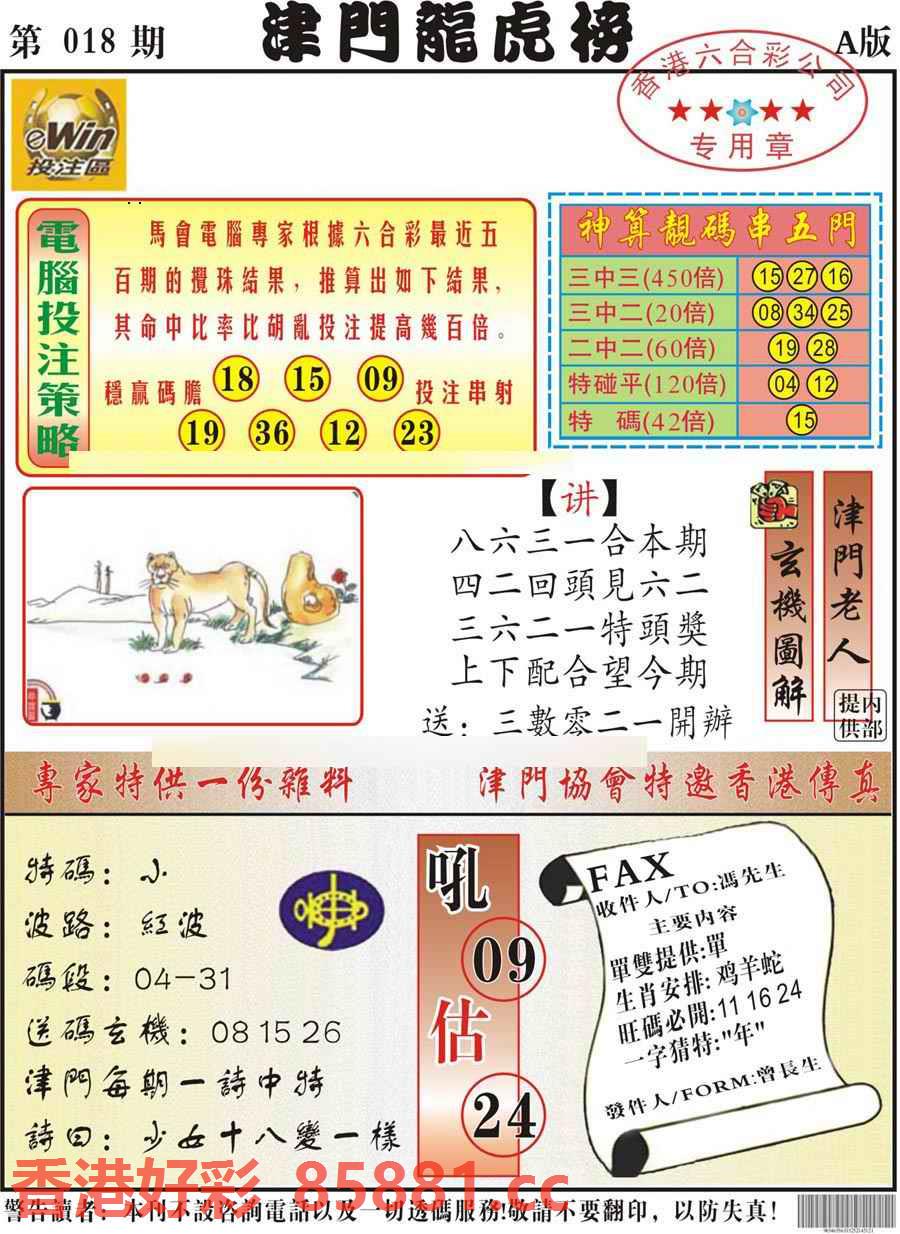 第 018 期
津門龍虎榜
A版
香港六合彩公司
专用章
eWin
投注區
電腦投注策略
馬會電腦專家根據六合彩最近五
百期的攪珠結果，推算出如下結果，
其命中比率比胡亂投注提高幾百倍。
穩贏碼膽 18 15 09 投注串射
19 36 12 23
神算靚碼串五門
三中三(450倍) 15 27 16
三中二(20倍) 08 34 25
二中二(60倍) 19 28
特碰平(120倍) 04 12
特 碼(42倍) 15
【讲】
八六三一合本期
四二回頭見六二
三六二一特頭獎
上下配合望今期
送：三數零二一開辦
玄機圖解
津門老人
内部提供
專家特供一份雜料
津門協會特邀香港傳真
特碼：小
波路：紅波
碼段：04-31
送碼玄機：08 15 26
津門每期一詩中特
詩曰：少女十八變一樣
吼
09
估
24
FAX
收件人/TO:馮先生
主要内容
單雙提供:單
生肖安排:鸡羊蛇
旺碼必開:11 16 24
一字猜特:"年"
發件人/FORM:曾長生
香港好彩 85881.cc
警告讀者：本刊不設咨詢電話以及一切透碼服務!敬請不要翻印，以防失真!